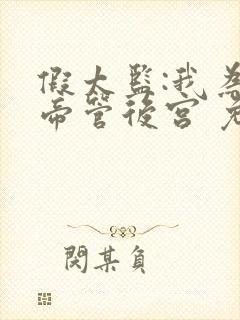 假太監:我為
帝管後宮
閃某負